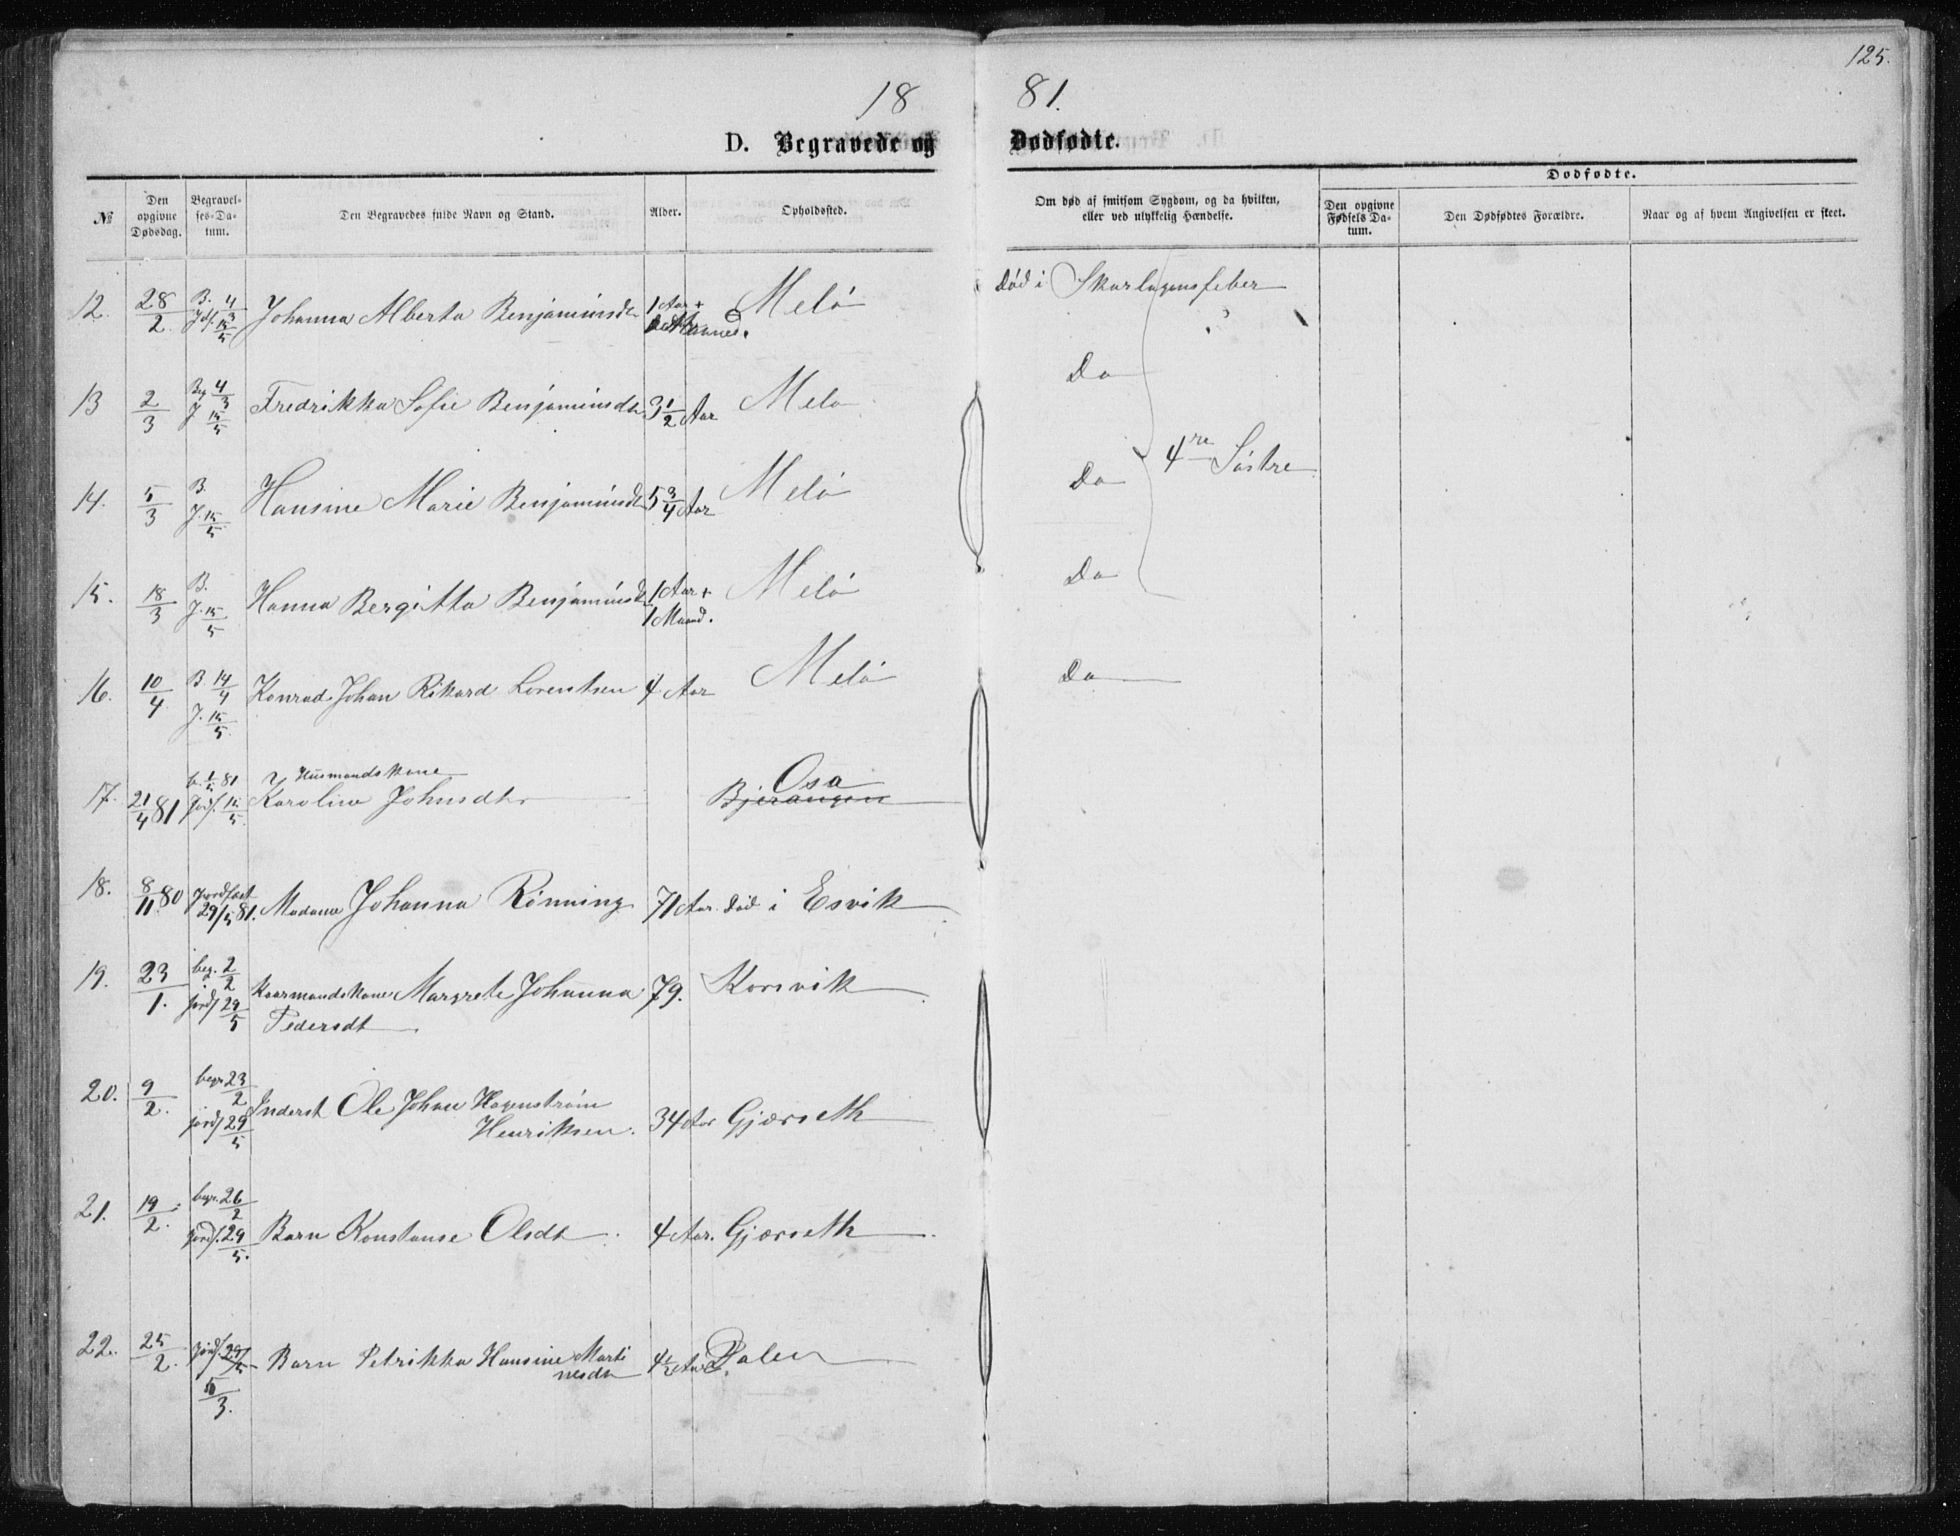 125.
18 81.
D. Begravede og Dødfødte.
Dødfødte.
№
Den opgivne Dødsdag.
Begravelses-Datum.
Den Begravedes fulde Navn og Stand.
Alder.
Opholdssted.
Om død af smitsom Sygdom, og da hvilken, eller ved ulykkelig Hændelse.
Den opgivne Fødsels Datum.
Den Dødfødtes Forældre.
Naar og af hvem Angivelsen er skeet.
12. 28/2. B. 4/3 Jdf. 15/5 Johanna Alberta Benjaminsdr 1 Aar + Melö død i Skarlagensfeber
13 2/3 Beg 4/3 J 15/5 Fredrikka Sofie Benjaminsdr 3 1/2 Aar Melö Do
4re Söstre
14. 5/3 B. J. 15/5 Hansine Marie Benjaminsdr 5 3/4 Aar Melö Do
15. 18/3 B. J. 15/5 Hanna Bergitta Benjaminsdr 1 Aar + 1 Maaned. Melö Do
16. 10/4 B 14/4 J. 15/5 Konrad Johan Rikard Lorentsen 4 Aar Melö Do
17. 21/4 81 b. 1/5 81 Jordf. 15/5 Husmandskone
Karoline Johnsdtr Bjerangen Osa
18. 8/11 80 Jordfæst 29/5 81. Madame Johanna Rönning 71 Aar død i Esvik
19. 23/1. beg. 2/2 jordf 29/5 Kaarmandskone Margrete Johanna
Pedersdt 79. Korsvik
20. 9/2. begr. 23/2 jordf 29/5 Inderst Ole Johan Hagenström
Henriksen. 34 Aar Gjærseth
21. 19/2. begr. 26/2 jordf. 29/5. Barn Konstanse Olsdt 4 Aar. Gjærseth
22. 25/2. Jordf. 29/5 5/3. Barn Petrikka Hansine Marti
nesdtr 4 1/2 Aar Dalen